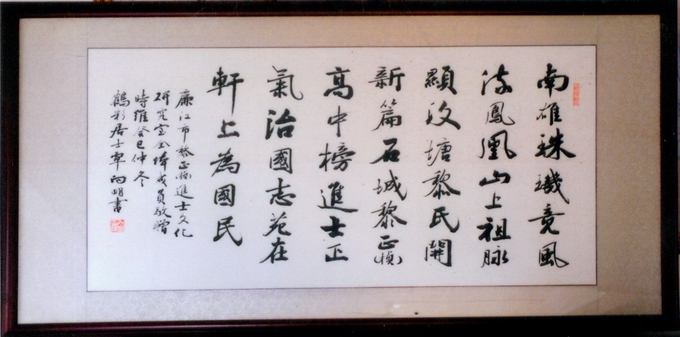 南雄珠璣竟風
流鳳凰山上祖脉
顯汶塘黎民開
新篇石城黎正
高中榜進士正
氣治國志苑在
軒上為國民
廉江市黎正進士文化
研究室全体成員敬贈
時維癸巳仲冬
鶴影居士向明書